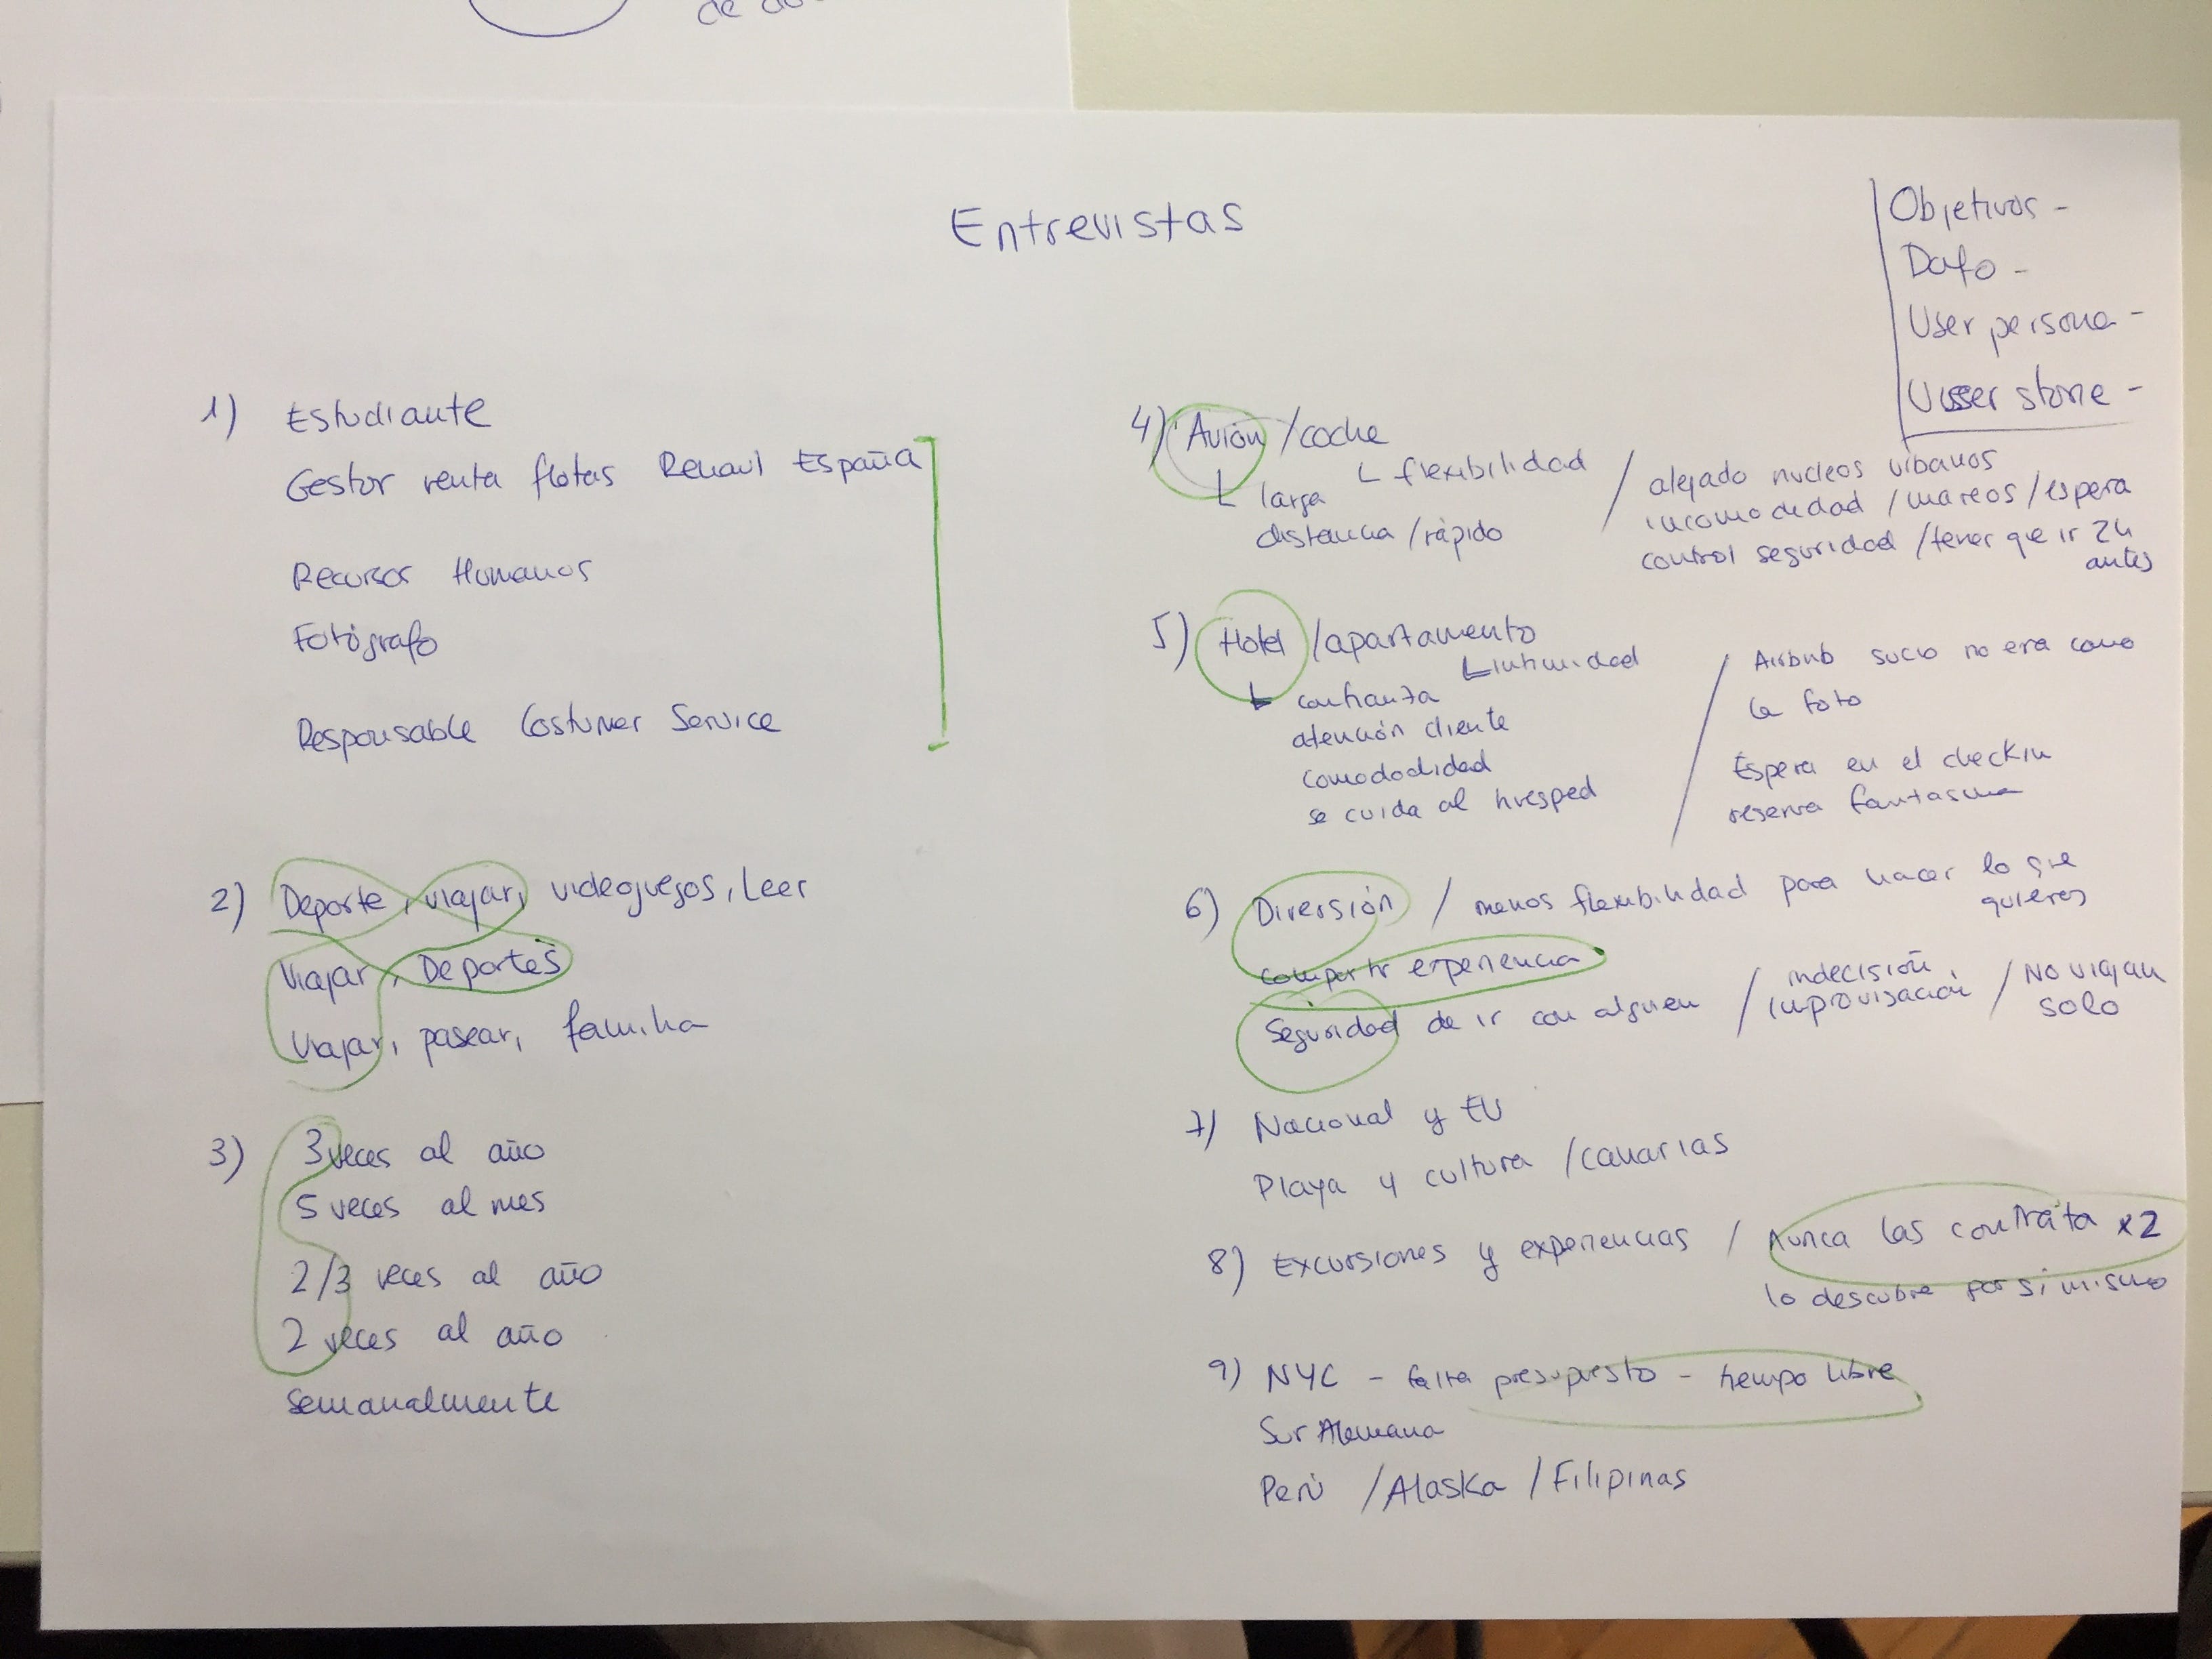 de
Entrevistas
Objetivos -
Dafo -
User persona -
Usser storie -
1) Estudiante
Gestor renta flotas Renaul España
Recursos Humanos
Fotógrafo
Responsable Costumer Service
2) Deporte, viajar, videojuegos, Leer
Viajar, Deportes
Viajar, pasear, familia
3) 3 veces al año
5 veces al mes
2/3 veces al año
2 veces al año
Semanalmente
4) Avión / coche
└ flexibilidad
└ larga
distancia / rápido
/ alejado nucleos urbanos
incomodidad / mareos / espera
control seguridad / tener que ir 2h
antes
5) Hotel / apartamento
└ intimidad
└ confianza
atención cliente
comododidad
se cuida al huesped
/ Airbnb sucio no era como
la foto
Espera en el checkin
reserva fantasma
6) Diversión / menos flexibilidad para hacer lo que
quieres
compartir experiencia
Seguridad de ir con alguien / indecisión, improvisación / No viajan
solo
7) Nacional y EU
Playa y cultura / canarias
8) Excursiones y experiencias / Nunca las contrata x2
lo descubre por si mismo
9) NYC - falta presupuesto - tiempo libre
Sur Alemana
Perú / Alaska / Filipinas